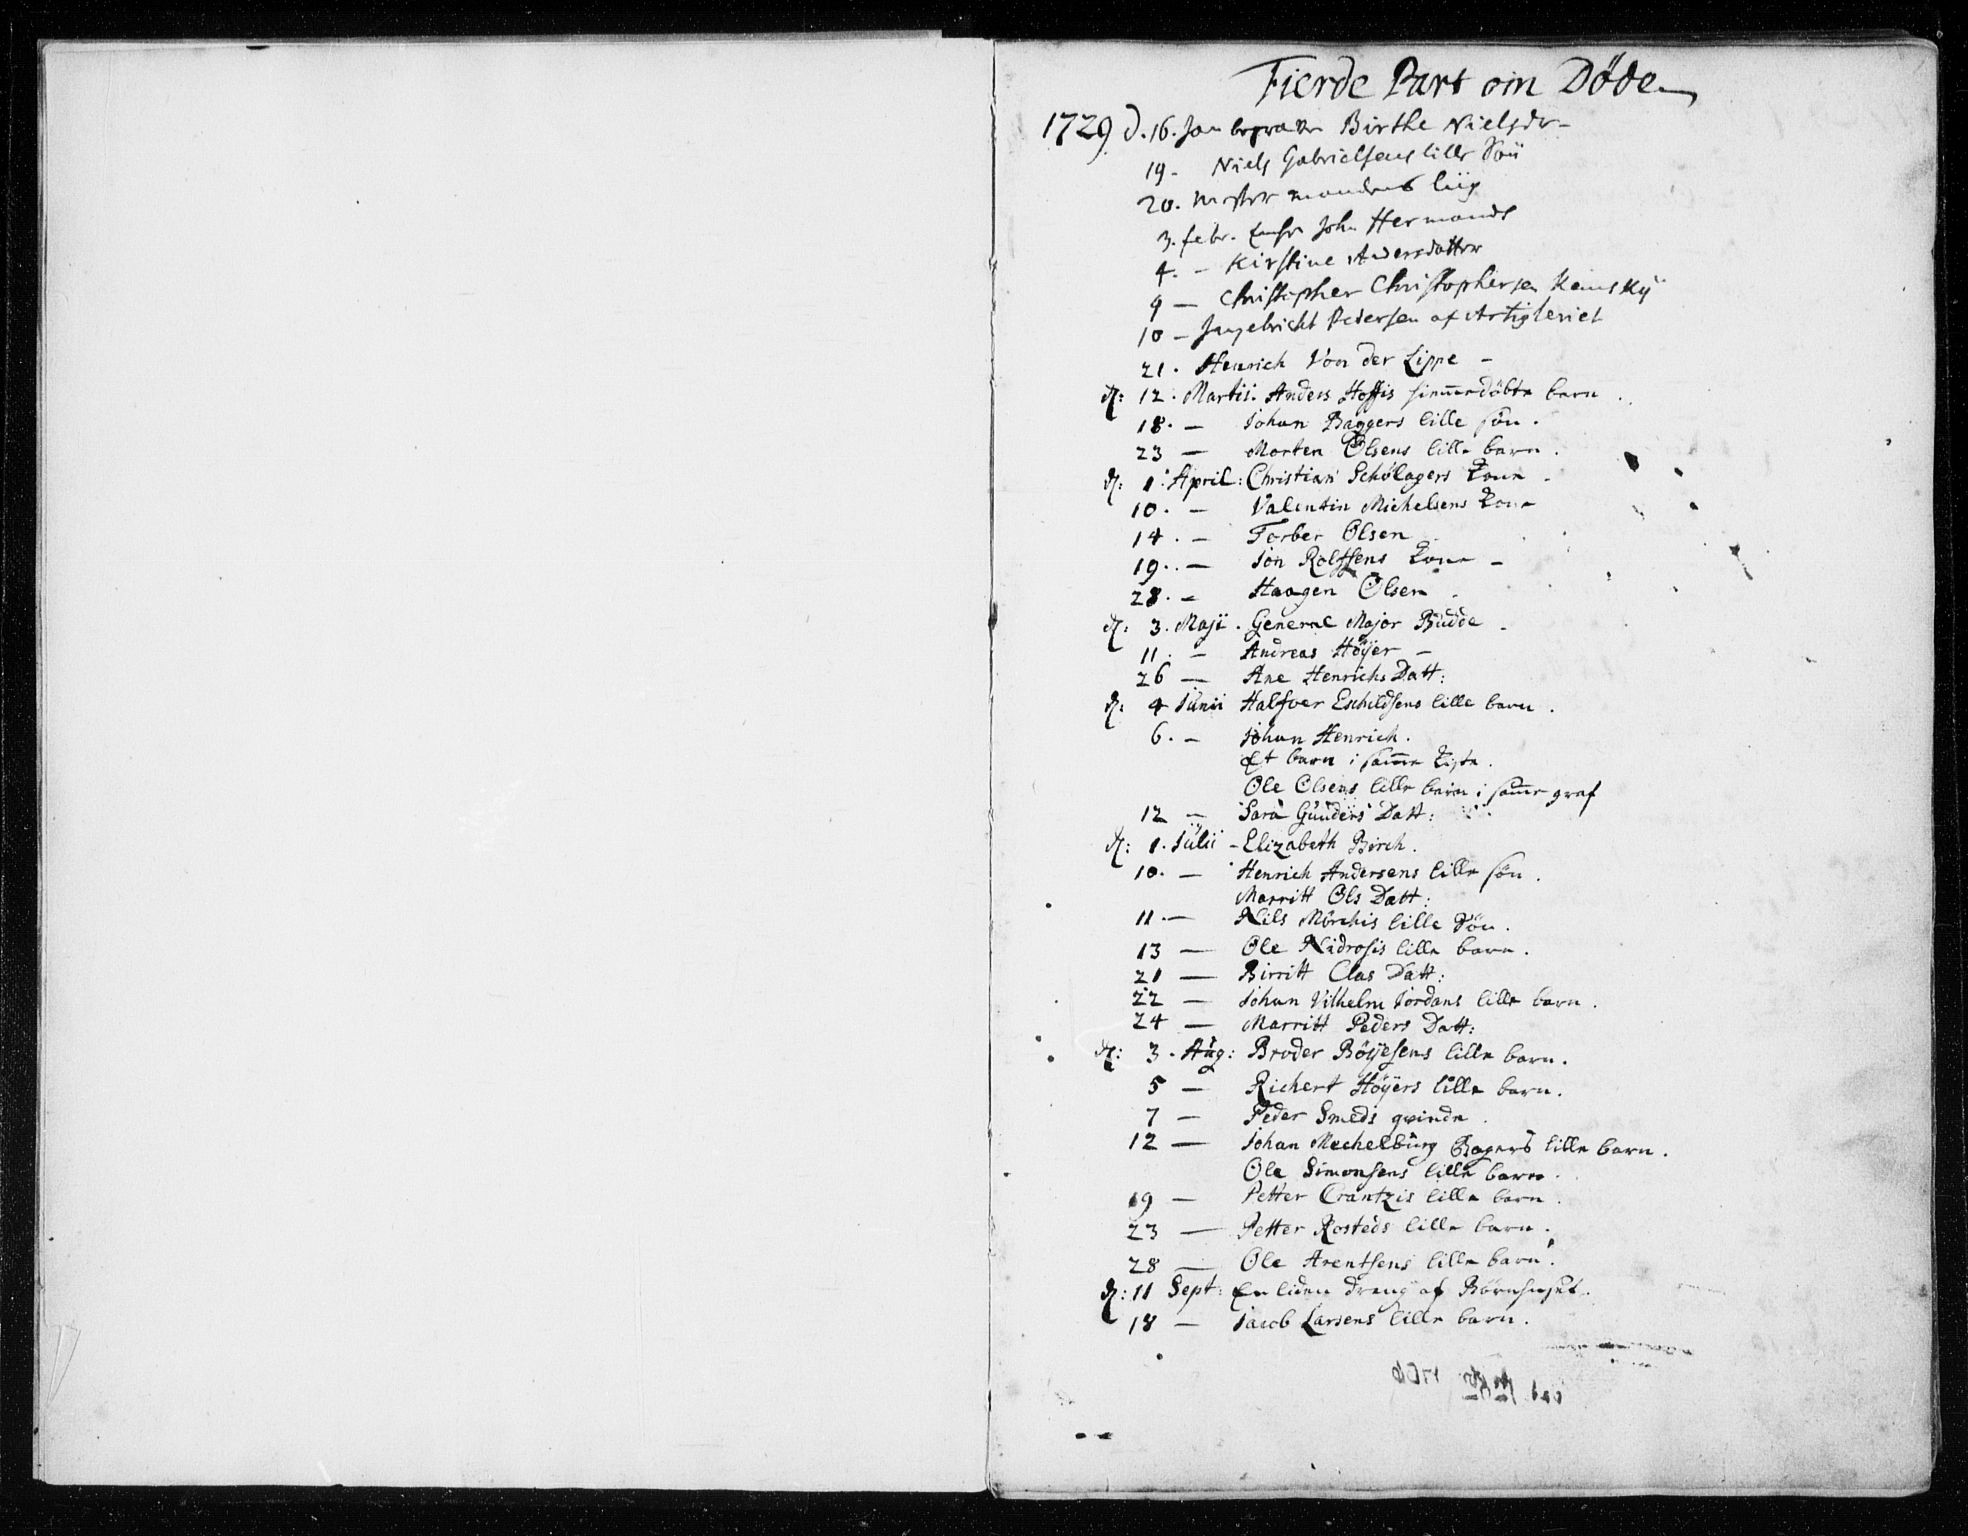 Fierde Part om Døde
1729 d. 16. Jan begraven Birthe Nielsdr
19. Niels Gabrielsens lille Søn
20. mester mandens liig
3. febr. John Hermands
4. - Kirstine Andersdatter
9 - Christopher Christophersen Kamsky
10 - Ingebricht Pedersen af Artigleriet
21. Henrich Von der Lippe -
d: 12. Martii. Anders Hoffis hiemmedöbte barn.
18. - Johan Baggers lille sön.
23 - Morten Olsens lille barn.
d: 1. April: Christian Schölagers Kone
10. - Valentin Michelsens Kone
14. - Torber Olsen
19. - Jon Rolfsens Kone -
28. - Haagen Olsen
d: 3. Maji. General Major Budde
11. - Andreas Höyer -
26 - Ane Henrichs Datt:
d: 4 Junii Halfver Eschildsens lille barn.
6. - Johan Henrich.
Et barn i samme Kiste.
Ole Olsens lille barn i samme graf
12 - Sara Gunders Datt:
d: 1. Julii - Elizabeth Birch.
10. - Henrich Andersens lille sön.
Marritt Ols Datt:
11. - Nils Mörchis lille Sön.
13 - Ole Nidrosis lille barn.
21 - Birritt Clas Datt:
22 - Johan Vilhelm Jordans lille barn.
24 - Marritt Peders Datt:
d: 3. Aug: Broder Böyesens lille barn.
5 - Richert Höyers lille barn.
7 - Peder Smeds qvinde
12 - Johan Mechelburg Bagers lille barn.
Ole Simonsens lille barn.
19 - Petter Crantzis lille barn.
23 - Petter Rosteds lille barn.
28 - Ole Arentsens lille barn.
d: 11 Sept: En liden dreng af Börnhuset.
18 - Jacob Larsens lille barn.